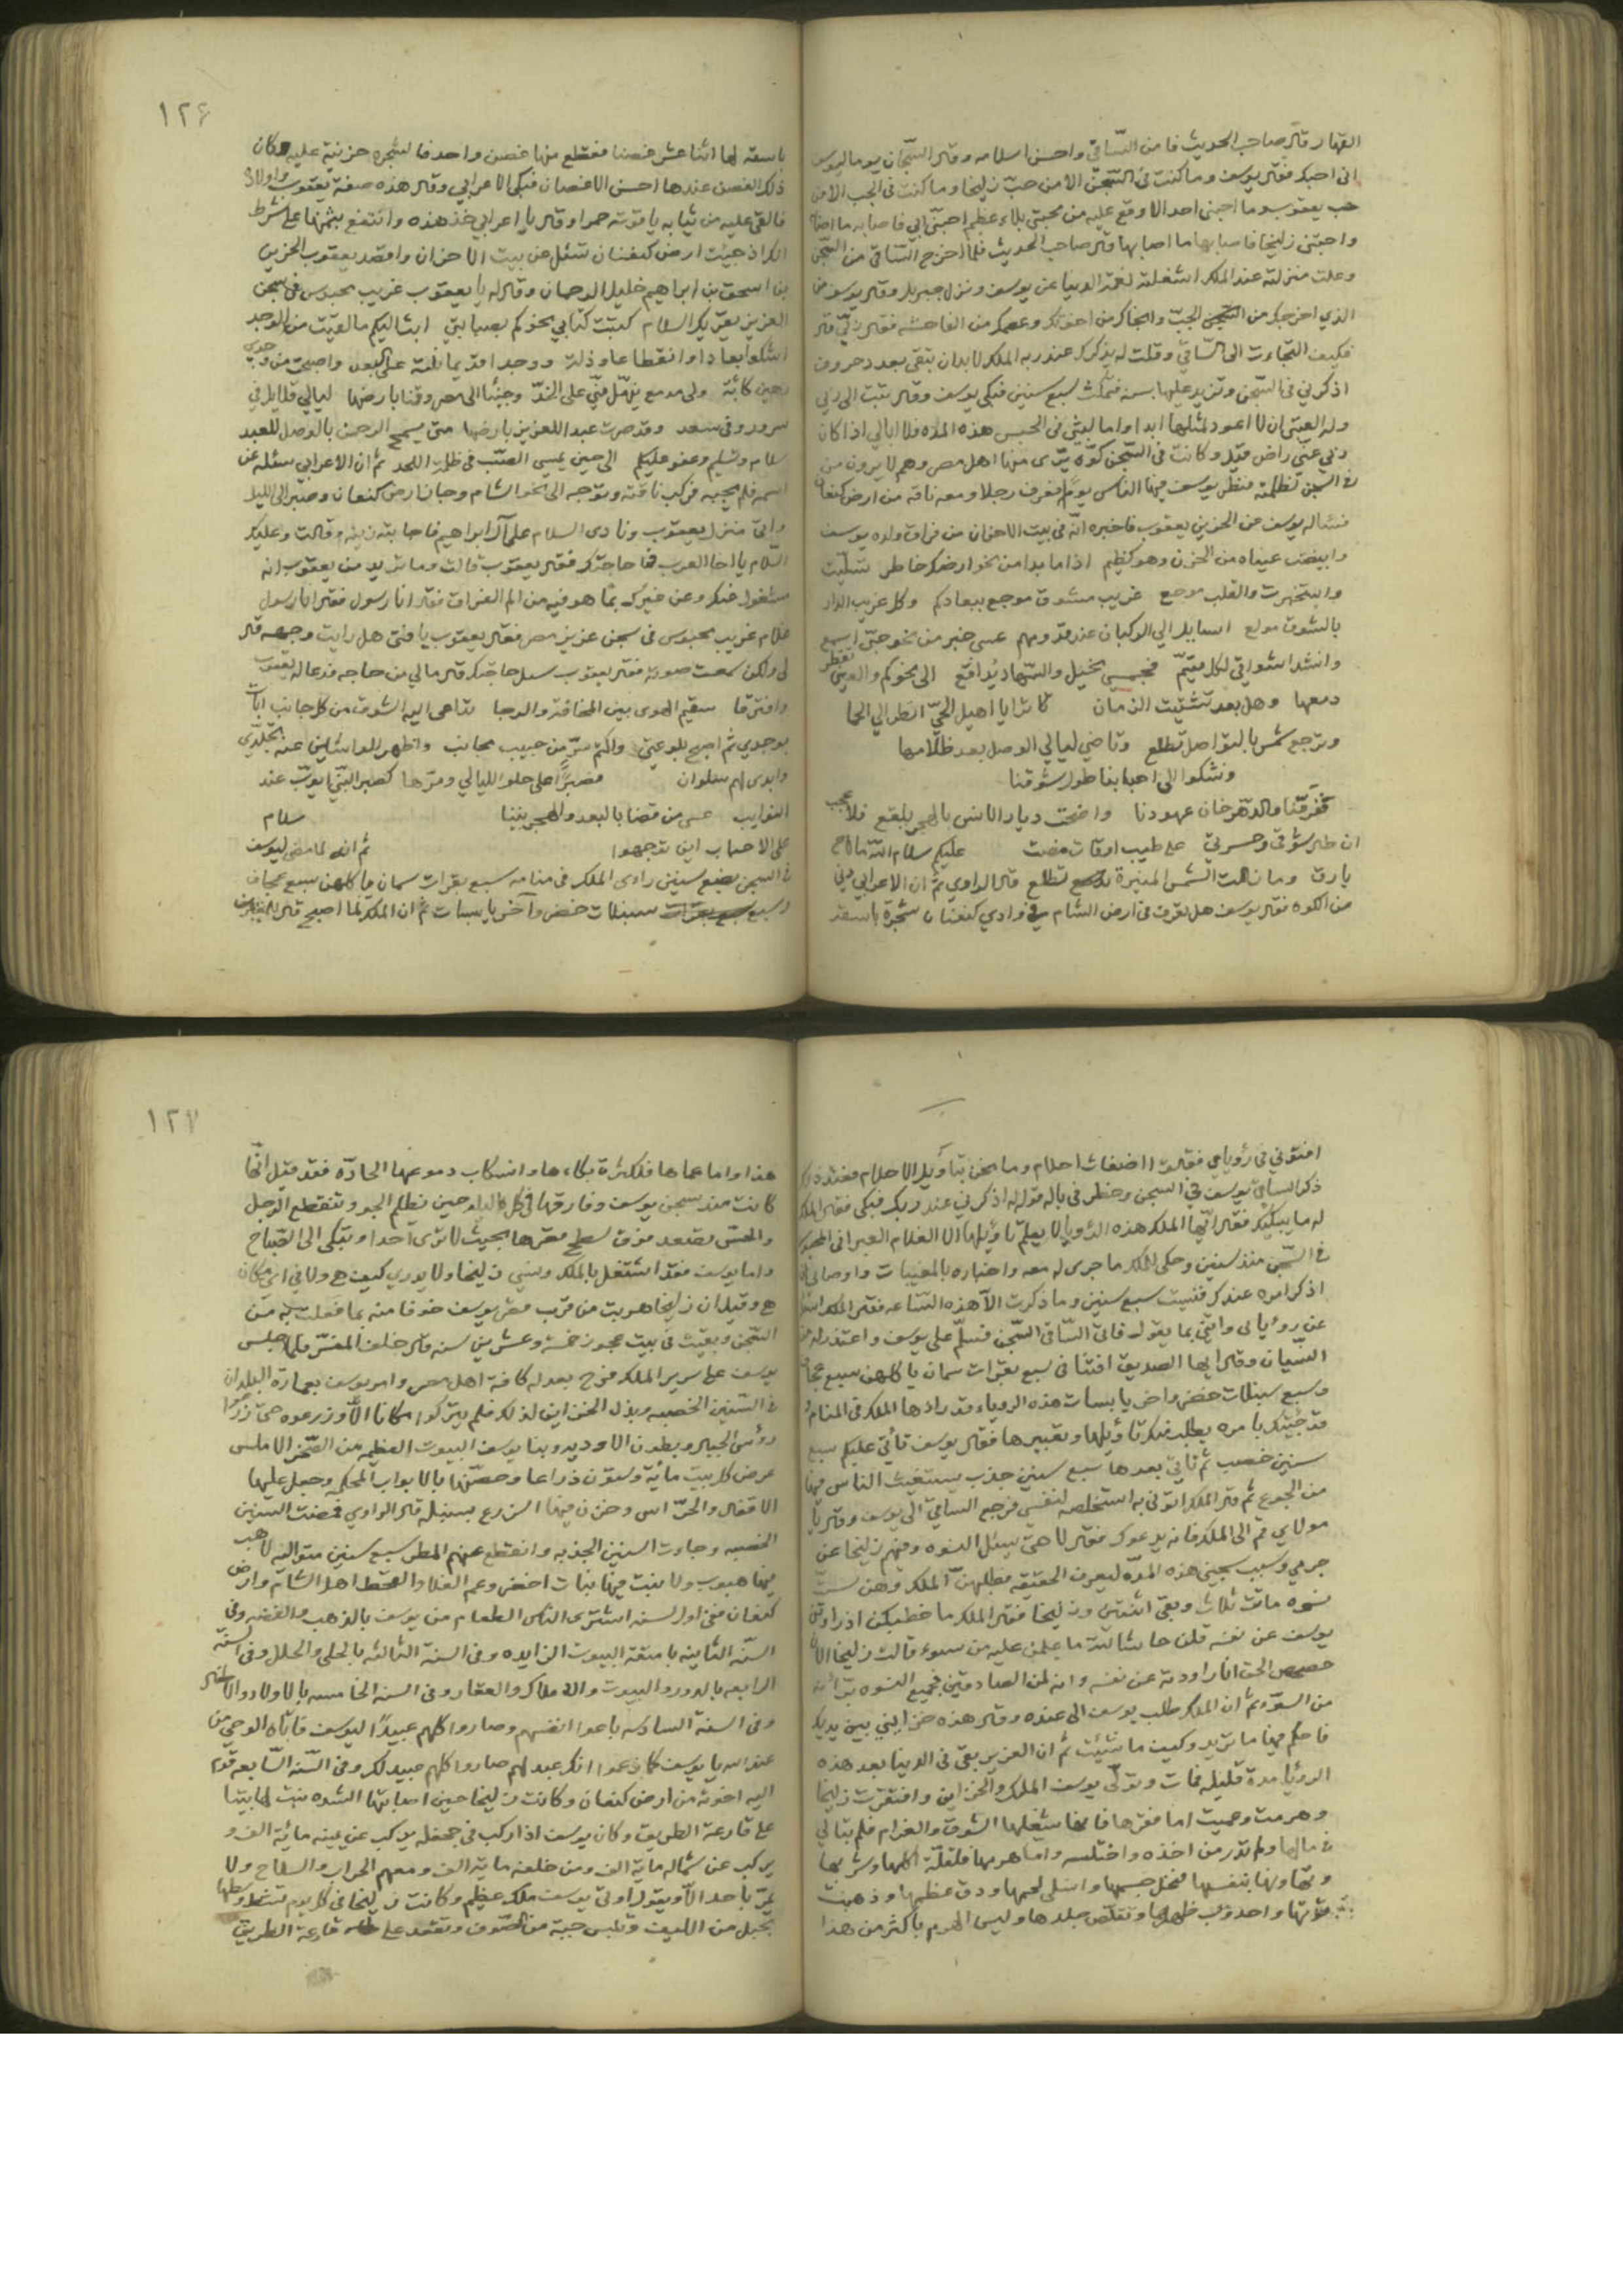 القهار قال صاحب الحديث فامن الساقي واحسن اسلامه وقال السجان يوما ليوسف
اني احبك فقال يوسف وما كنت في السجن الا من حب زليخا وما كنت في الجب الا من
حب يعقوب وما احبني احد الا وقع عليه من محبتي بلاء عظيم احبني ابي فاصابه ما اصابه
واحبتني زليخا فاصابها ما اصابها قال صاحب الحديث فلما اخرج الساقي من السجن
وعلت منزلته عند الملك اشغلته لغمة الدنيا عن يوسف ونزل جبريل وقال يوسف من
الذي اخرجك من الجب وانجاك من اخوتك وعصمك من الفاحشه فقال ربي قال
فكيف التجاءت الى الساقي وقلت له يذكرك عند ربه الملك لابدان تبقى بعدد حروف
اذكرني في السجن وتزيد عليها سنه فتمكث سبع سنين فبكى يوسف وقال تبت الى ربي
وله العتبى ان لا اعود لمثلها ابدا واما لبثي في الحبس هذه المده فلا ابالي اذا كان
ربي عني راض قيل وكانت في السجن كوه يرى منها اهل مصر وهم لا يرون من
في السجن لظلمته فنظر يوسف فيها الناس يوما فعرف رجلا ومعه ناقه من ارض كنعان
فسئاله يوسف عن الحزين يعقوب فاخبره انه في بيت الاحزان من فراق ولده يوسف
وابيضت عيناه من الحزن وهو كظيم اذا ما بدا من نحو ارضكم خاطر
والقلب موجع غريب مشوق موجع ببعادكم وكل غريب الدار
بالشوق مولع اسايل الي الركبان عند قدومهم عسى خبر من نحو حبي اسمع
وانشد اشواقي لكل متيم فجسمي نحيل والسهاد يدافع الى نحوكم والعين تقطر
دمعها وهل بعد تشتيت الزمان ترايا اهيل الحي انظر الي الحما
وترجع شمس بالتواصل تطلع وتاضي ليالي الوصل بعد ظلامها
ونشكوا الى احبابنا طول شوقنا
تفرقنا والدهر خان عهودنا واضحت ديار الانس بالهجر بلقع فلا عجب
ان طال شوقي وحسرتي على طيب اوقات مضت عليكم سلام الله ما لاح
بارق وما زالت الشمس المنيرة تطلع قال الراوي ثم ان الاعرابي دني
من الكوه فقال يوسف هل تعرف في ارض الشام في وادي كنعان شجرة باسقه
١٢٦
باسقه لها اثنا عشر غصنا فقطع منها غصن واحد فالشجره حزينة عليه وكان
ذلك الغصن عندها احسن الاغصان فبكى الاعرابي وقال هذه صفة يعقوب واولاده
فالقى عليه من ثيابه ياقوته حمرا وقال يا اعرابي خذ هذه وانتفع بثمنها على شرط
انك اذ جيئت ارض كنعنان تسئل عن بيت الاحزان واقصد يعقوب الحزين
بن اسحق بن ابراهيم خليل الرحمان وقال له يا يعقوب غريب محبوس في سجن
العزيز يقريك السلام كتبت كتابي نحوكم بصبابتي ابث اليكم ما لقيت من الوجد
اشكوا بعادا وانقطاعا وذلة ووجدا قديما على البعد واصبحت من وجدي
رهين كائبة ولى مدمع ينهل مني على الخد وجئنا الى مصر وقنا بارضها ليالي قلايل في
سرور وفي سعد وقد صرت عبدا للعزيز بارضها متى يسمح الرحمن بالوصل للعبد
سلام وتسليم وعفو عليكم الى حين يمسى الصب في ظلمت اللحد ثم ان الاعرابي سئله عن
اسمه فلم يجيبه فركب ناقته وتوجه الى نحو الشام وجا ارض كنعان وصبر الى الليل
واتى منزل يعقوب ونادى السلام على آل ابراهيم فاجابته زينه وقالت وعليك
السلام يا اخا العرب فما حاجتك فقال يعقوب قالت وما تريد من يعقوب انه
مشغول عنك وعن غيرك بما هو فيه من الم الفراق فقال انا رسول فقال انا رسول
غلام غريب محبوس في سجن عزيز مصر فقال يعقوب يا فتى هل رايت وجهه قال
لا ولكن سمعت صوته فقال يعقوب سل حاجتك قال مالي من حاجه فدعا له يعقوب
وافترقا سقيم الهوى بين المخافة والرجا تداعى اليه الشوق من كل جانب اباث
بوجدي ثم اصبح بلوعتي واكتم سري من حبيب مجانب واظهر للواشين عنه تجلدي
وابدى لهم سلوان فصبرا على حلو الليالي ومرها كصبر النبي ايوب عند
النوايب عسى من قضا بالبعد والهجر بيننا سلام
على الاحباب اين توجهوا ثم انه لما مضى ليوسف
في السجن بضع سنين راوى الملك في منامه سبع بقرات سمان ياكلهن سبع عجاف
وسبع سنبلات خضر وآخر يابسات ثم ان الملك لما اصبح قال
افتوني في رؤياي فقالوا اضغاث احلام وما نحن بتاويل الاحلام فعند ذلك
ذكر الساقي يوسف في السجن وخطر في باله قوله له اذكرني عند ربك فبكى فقال الملك
له ما يبكيك فقال ايها الملك هذه الرؤيا لا يعلم تاؤيلها الا الغلام العبراني المحبوس
في السجن منذ سنين وحكى للملك ما جرى له معه واخباره بالمغيبات واوصاني ان
اذكر امره عندك فنسيت سبع سنين وما ذكرت الا هذه الساعه فقال الملك
عن رؤيايى وائتني بما يقول فاتى الساقي السجن فسلم على يوسف واعتذر له من
النسيان وقال ايها الصديق افتنا في سبع بقرات سمان ياكلهن سبع عجاف
وسبع سنبلات خضر واخر يابسات هذه الروياء قد رادها الملك في المنام
قد جئتك بامره يطلب منك تاؤيلها وتعبيرها فقال يوسف تأتي عليكم سبع
سنين خصب ثم تاتي بعدها سبع سنين جذب يستغيث الناس فيها
من الجوع ثم قال الملك اتوني به استخلصه لنفسي فرجع الساقي الى يوسف وقال يا
مولاي قم الى الملك فانه يدعوك فقال لا حتى يسئل النسوه ومنهم زليخا عن
جرمي وسبب سجني هذه المده ليعرف الحقيقه فطلبهن الملك وهن ست
نسوه مات ثلاث وبقى اثنتين وزليخا فقال الملك ما خطبكن اذ راودتن
يوسف عن نفسه قلن حاشا لله ما علمن عليه من سوء قالت زليخا الان
حصحص الحق انا راودته عن نفسه وانه لمن الصادقين فجميع النسوه
من السوء ثم ان الملك طلب يوسف الى عنده وقال هذه خزايني بين يديك
فاحكم فيها ما تريد وكيف ما شئيت ثم ان العزيز بقى في الدينا بعد هذه
الرؤيا مدة قليله فمات وتولى يوسف الملك والخزاين وافتقرت زليخا
وهرمت وعميت اما فقرها فانها شغلها الشوق والغرام فلم تبالي
في مالها ولم تدر من اخذه واختلسه واما هرمها فلقلة اكلها وشربها
وتهاونها بنفسها فنحل جسمها وانسلى لحمها ودق عظمها وذهبت
قوتها واحدودب ظهرها وتقلص جلدها وليس الهرم باكثر من هذا
١٢٧
هذا واما عماها فلكثرة بكاءها وانسكاب دموعها الحاده فقد قيل انها
كانت منذ سجن يوسف وفارقها في كل ليله حين يظلم الجو وتنقطع الرجل
والحس تصعد فوق سطح قصرها بحيث لا ترى احدا وتبكى الى الصباح
واما يوسف فقد اشتغل بالملك ونسي زليخا ولا يدري كيف هي ولا في اي مكان
هي وقيل ان زليخا هربت من قرب قصر يوسف خوفا منه بما فعلت به من
السجن وبقيت في بيت عجوز خمسة وعشرين سنه قال خلف المفسر فلما جلس
يوسف على سرير الملك فرح بعدله كافة اهل مصر وامر يوسف بعمارة البلدان
في السنين الخصبه وبذل الخزاين لذلك فلم يتركوا مكانا الا وزرعوه حتى زرعوا
رؤس الجبال وبطون الاوديه وبنا يوسف البيوت العظيمه من الصخر الاملس
عرض كل بيت مائة وستون ذراعا وحصنها بالابواب المحكمه وجعل عليها
الاقفال والحراس وخزن فيها الزرع بسنبله قال الراوي فمضت السنين
الخصبه وجاءت السنين الجذبه وانقطع عنهم المطر سبع سنين متواليه لا هب
فيها هبوب ولا ينبت فيها نبات اخضر وعم الغلا والقحط اهل الشام وارض
كنعان ففي اول سنه اشترى الناس الطعام من يوسف بالذهب والفضه وفي
السنة الثانيه بامتعة البيوت الزايده وفي السنة الثالثه بالحلى والحلل وفي السنة
الرابعه بالدور والبيوت والاملاك والعقار وفي السنه الخامسه بالاولاد
وفي السنة السادسه باعوا انفسهم وصاروا كلهم عبيدا ليوسف فاتاه الوحي من
عند الله يا يوسف كما زعموا انك عبد لهم صاروا كلهم عبيد لك وفي السنه السابعه قدم
اليه اخوته من ارض كنعان وكانت زليخا حين اصابتها الشده بنت لها بيتا
على قارعة الطريق وكان يوسف اذا ركب في جحفله يركب عن يمينه مائة الف و
يركب عن شماله ماية الف ومن خلفه ماية الف ومعهم الحراب والسلاح ولا
يمر باحد الا ويقول اوتي يوسف ملك عظيم وكانت زليخا في كل يوم تشد وسطها
بحبل من الليف وتلبس جبة من الصوف وتقعد على قارعة الطريق